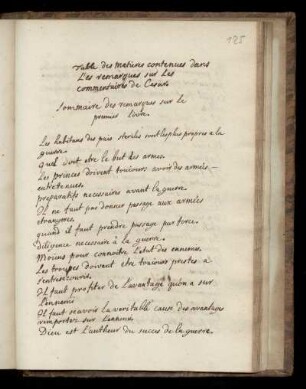 125
Table des matieres contenues dans
Les remarques sur Les
commentaires de Cesar
Sommaire des remarques sur le
premier Livre.
Les habitans des païs steriles sont les plus propres a la
guerre.
Quel doit etre le but des armes.
Les princes doivent toujours avoir des armées
entretenues.
preparatifs necessaires avant la guerre.
Il ne faut pas donner passage aux armées
etrangeres
quand il faut prendre passage par force.
diligence necessaire a la guerre.
Moiens pour connoitre L'etat des ennemis.
Les troupes doivent etre toujours prestes a
s'entresecourir.
Il faut profiter de L'avantage qu'on a sur
L'ennemi
Il faut sçavoir la veritable cause des avantages
remportez sur L'ennemi.
Dieu est L'autheur du succes de la guerre.